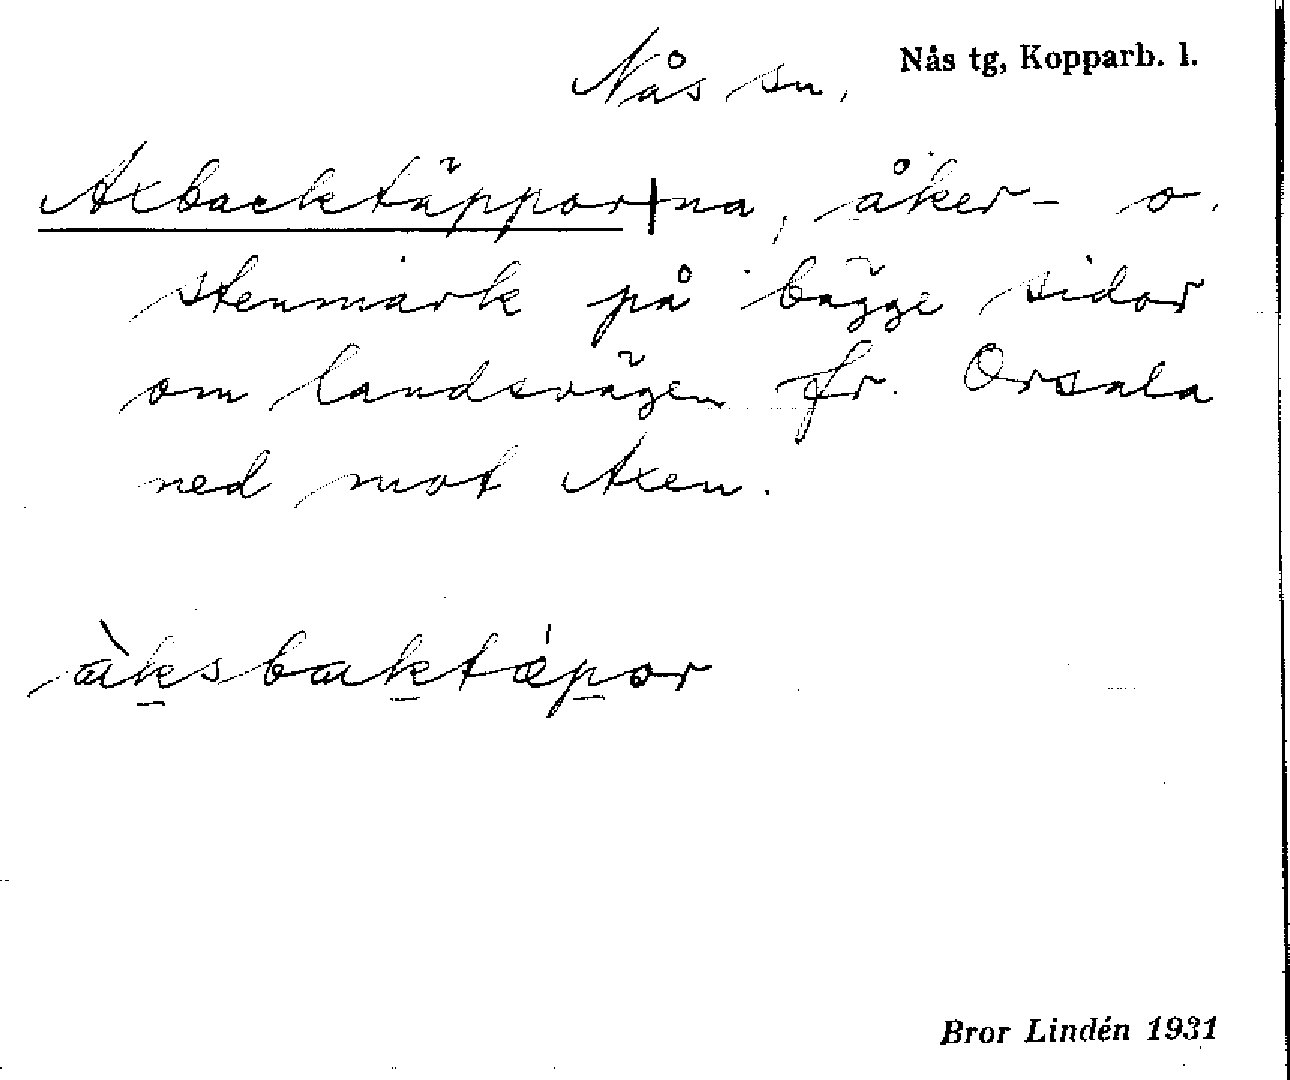 Nås sn. Nås tg, Kopparb. l.
Axbacktäppor|na, åker- o.
stenmark på bägge sidor
om landsvägen fr. Orsala
ned mot Axen.
àksbaktæ̀por
Bror Lindén 1931